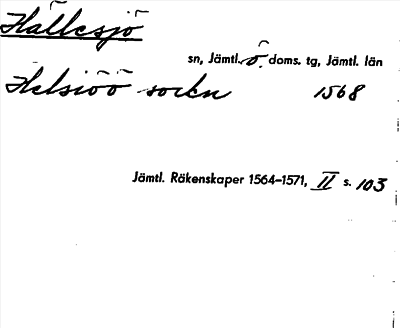 Hällesjö
sn, Jämtl. ö. doms. tg, Jämtl. län
Helsiöö sockn 1568
Jämtl. Räkenskaper 1564-1571, II s. 103